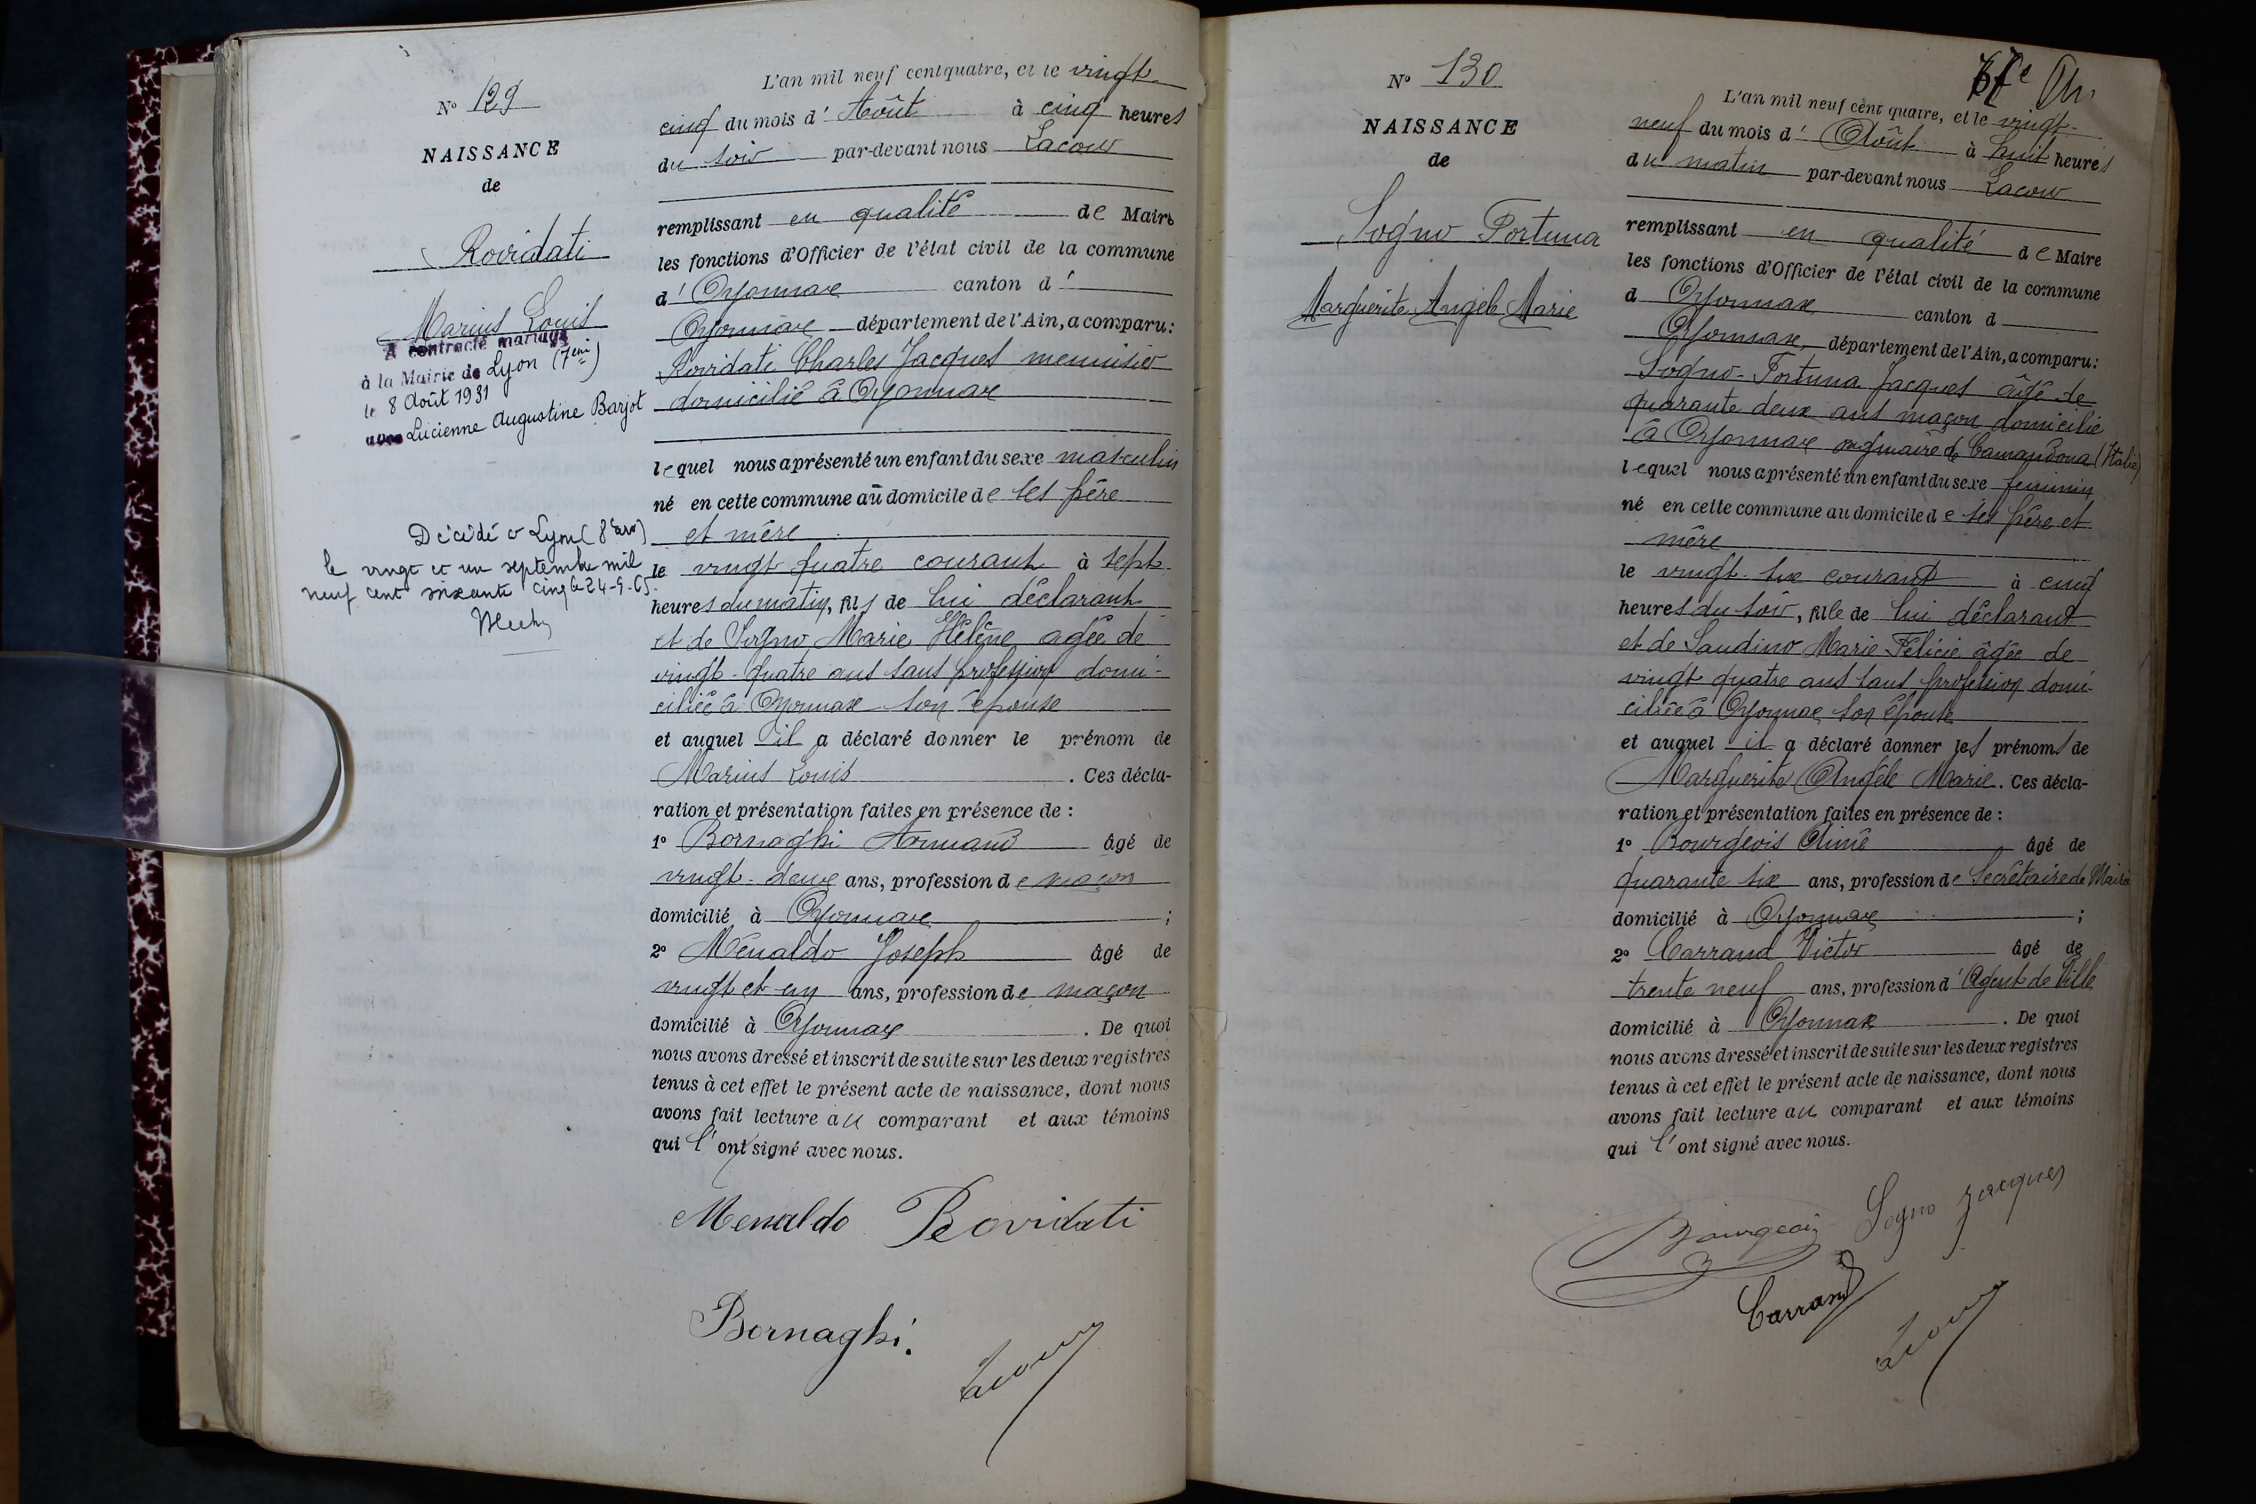 N° 129
NAISSANCE
de
Rovidati
Marius Louis
A contracté mariage
à la Mairie de Lyon (7eme)
le 8 Août 1931
avec Lucienne Augustine Barjot
Décédé à Lyon (8e arr)
le vingt et un septembre mil
neuf cent soixante cinq le 24-9-65
L'an mil neuf cent quatre, et le vingt
cinq du mois d' Août à cinq heures
du soir par-devant nous Lacour
remplissant en qualité de Maire
les fonctions d'Officier de l'état civil de la commune
d' Oyonnax canton d'
Oyonnax département de l'Ain, a comparu:
Rovidati Charles Jacques menuisier
domicilié à Oyonnax
lequel nous a présenté un enfant du sexe masculin
né en cette commune au domicile de ses père
et mère
le vingt quatre courant à sept
heures du matin, fils de lui déclarant
et de Sogno Marie Hélène agée de
vingt-quatre ans sans profession domi-
ciliée à Oyonnax son épouse
et auquel il a déclaré donner le prénom de
Marius Louis . Ces décla-
ration et présentation faites en présence de :
1° Bornaghi Armand âgé de
vingt-deux ans, profession de maçon
domicilié à Oyonnax ;
2° Ménaldo Joseph âgé de
vingt et un ans, profession de maçon
domicilié à Oyonnax . De quoi
nous avons dressé et inscrit de suite sur les deux registres
tenus à cet effet le présent acte de naissance, dont nous
avons fait lecture au comparant et aux témoins
qui l'ont signé avec nous.
Menaldo Rovidati
Bornaghi.
Lacour
N° 130
NAISSANCE
de
Sogno Fortuna
Marguerite Angèle Marie
L'an mil neuf cent quatre, et le vingt-
neuf du mois d' Août à huit heures
du matin par-devant nous Lacour
remplissant en qualité de Maire
les fonctions d'Officier de l'état civil de la commune
d Oyonnax canton d
Oyonnax département de l'Ain, a comparu:
Sogno-Fortuna Jacques âgé de
quarante deux ans maçon domicilié
à Oyonnax originaire de Camandona (Italie)
lequel nous a présenté un enfant du sexe feminin
né en cette commune au domicile de ses père et
mère
le vingt-six courant à cinq
heures du soir, fille de lui déclarant
et de Sandino Marie Félicie âgée de
vingt quatre ans sans profession domi-
ciliée à Oyonnax son épouse
et auquel il a déclaré donner les prénoms de
Marguerite Angèle Marie. Ces décla-
ration et présentation faites en présence de :
1° Bourgeois Aimé âgé de
quarante six ans, profession de Secrétaire de Mairie
domicilié à Oyonnax ;
2° Carrand Victor âgé de
trente neuf ans, profession d'Agent de Ville
domicilié à Oyonnax . De quoi
nous avons dressé et inscrit de suite sur les deux registres
tenus à cet effet le présent acte de naissance, dont nous
avons fait lecture au comparant et aux témoins
qui l'ont signé avec nous.
Bourgeois Sogno Jacques
Carrand
Lacour